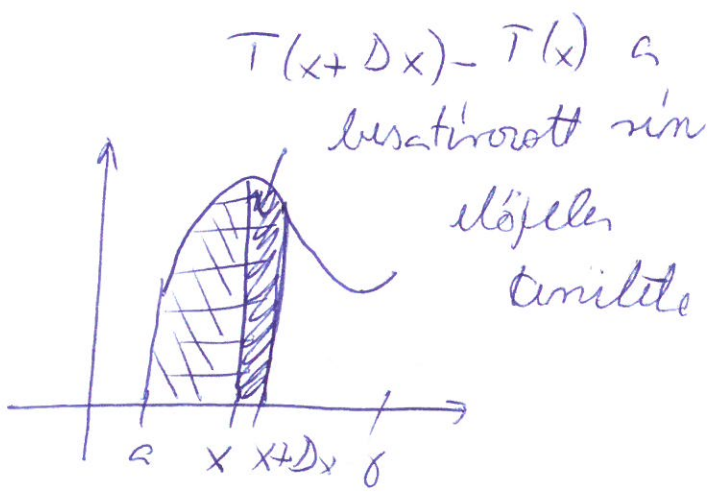 T(x+Dx)-T(x) a
besatírozott rész
előjeles
területe
a x x+Dx b